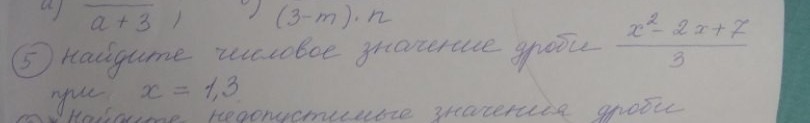 a + 3 ) (3-m)·n
5 найдите числовое значение дроби (x² - 2x + 7)/3
при x = 1,3
Найдите недопустимые значения дроби